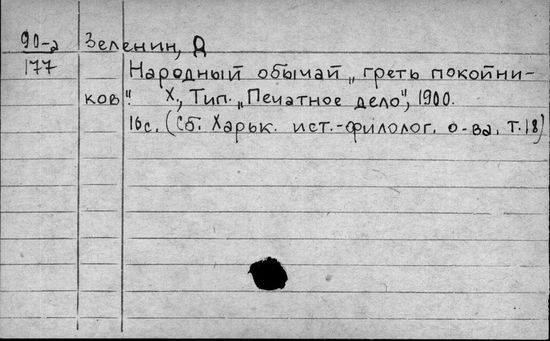 90-2 Зеленин, Д
177 Народный обычай „греть покойни-
ков". Х., Тип. „Печатное дело", 1900.
16 с. (Сб. Харьк. ист.-филолог. о-ва. т. 18)